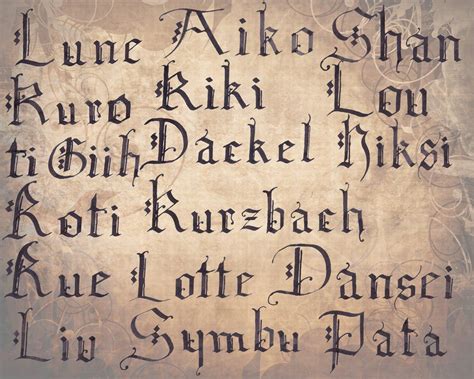 Lune Aiko Shan
Kuro Kiki Lou
ti Giih Dackel Niksi
Koti Kurzbach
Kue Lotte Dansei
Liv Symbu Pata